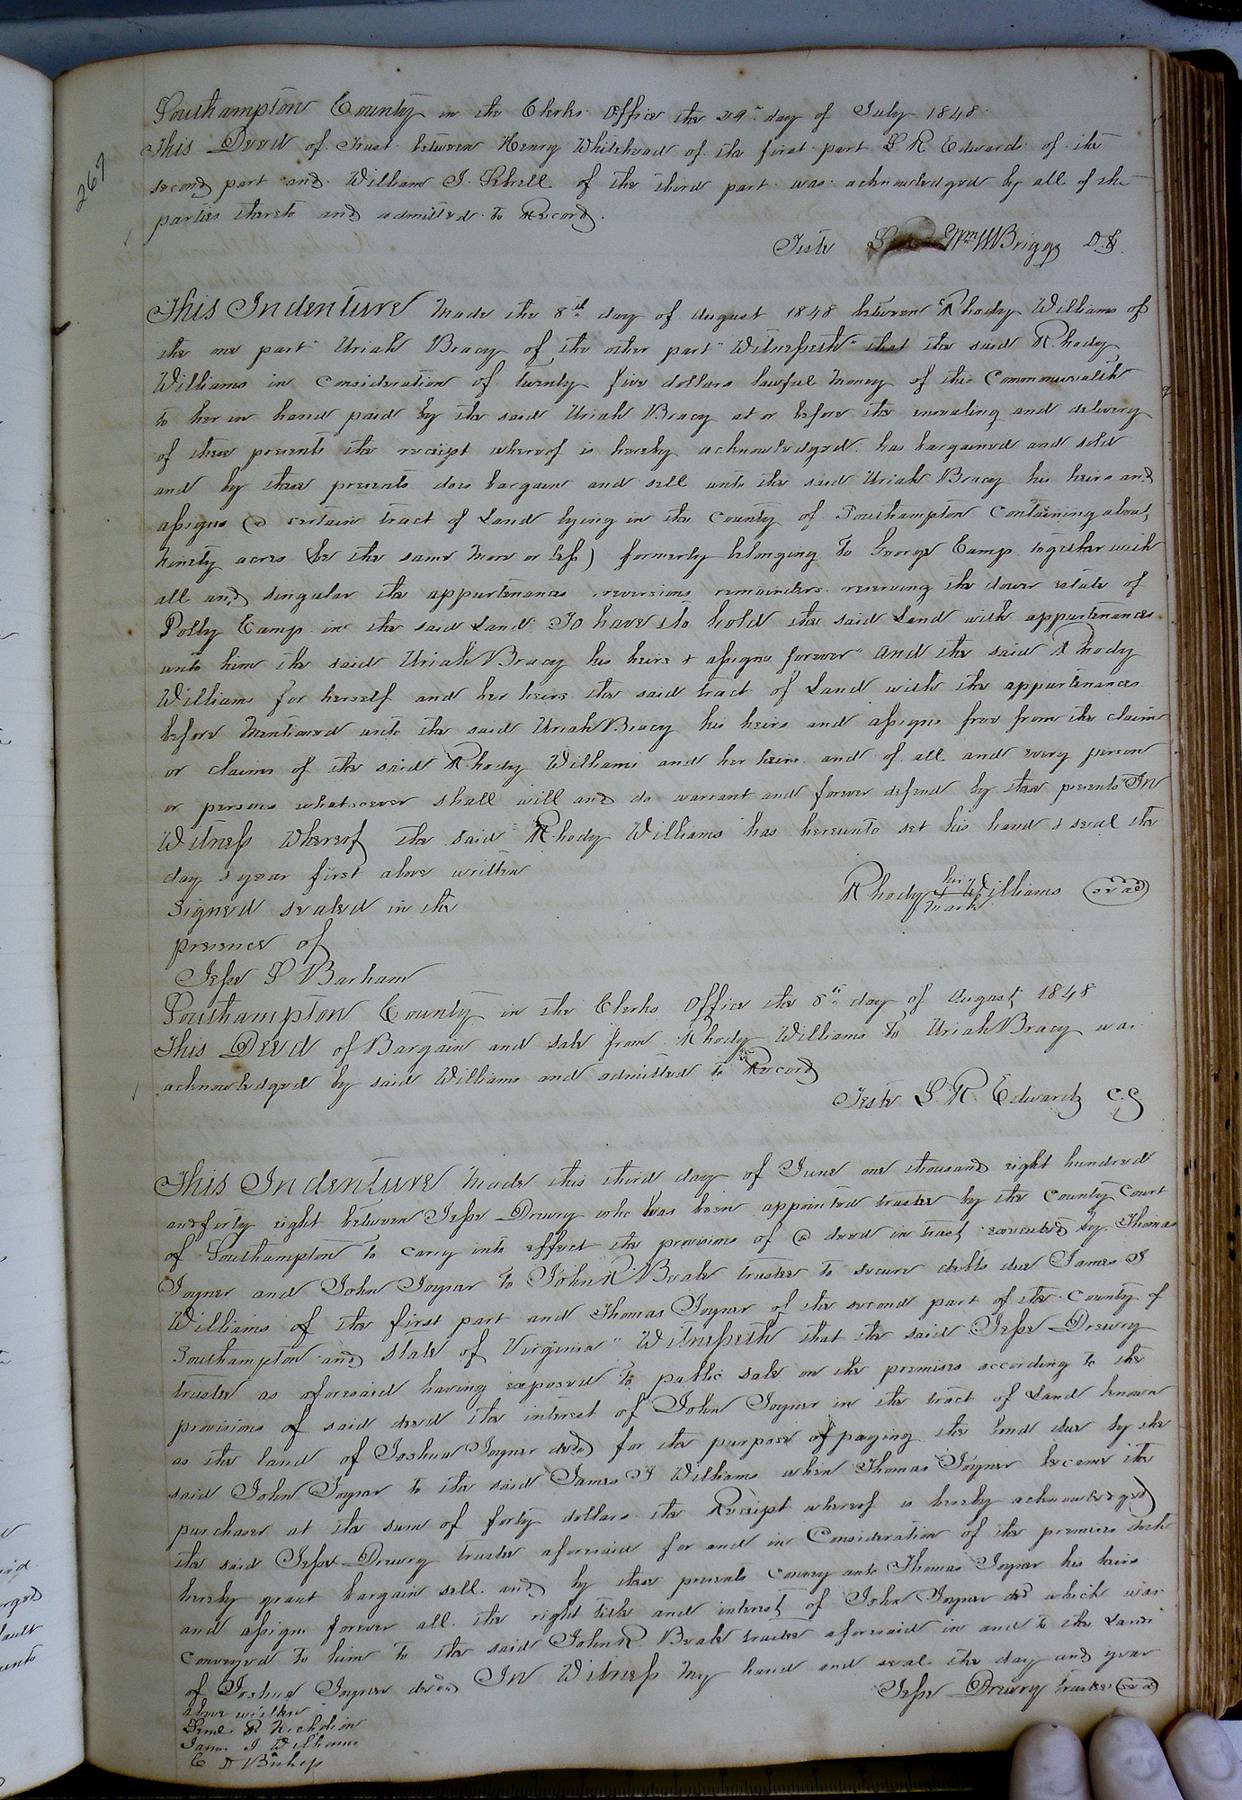 267
Southampton County in the Clerks Office the 29th day of July 1848
This Deed of Trust between Henry Whitehead of the first part L R Edwards of the
second part and William J. Sebrell of the third part was acknowledged by all of the
parties thereto and admitted to Record.
Teste Wm W Briggs D.C.
This Indenture Made the 8th day of August 1848 between Rhody Williams of
the one part Uriah Bracy of the other part "Witnesseth" that the said Rhody
Williams in consideration of twenty five dollars lawful money of this Commonwealth
to her in hand paid by the said Uriah Bracy at or before the ensealing and delivery
of these presents the receipt whereof is hereby acknowledged has bargained and sold
and by these presents does bargain and sell unto the said Uriah Bracy his heirs and
assigns (a certain tract of Land lying in the County of Southampton Containing about
Ninety acres be the same more or less) formerly belonging to George Camp together with
all and singular the appurtenances reversions remainders reserving the dower estate of
Polly Camp in the said Land To have & to hold the said Land with appurtenances
unto him the said Uriah Bracy his heirs & assigns forever" And the said Rhody
Williams for herself and her heirs the said tract of Land with the appurtenances
before Mentioned unto the said Uriah Bracy his heirs and assigns free from the claim
or claims of the said Rhody Williams and her heirs and of all and every person
or persons whatsoever shall will and do warrant and forever defend by these presents In
Witness Whereof the said Rhody Williams has hereunto set his hand & seal the
day & year first above written
Rhody his + mark Williams (seal)
Signed sealed in the
presence of
Jesse P Barham
Southampton County in the Clerks Office the 8th day of August 1848
This Deed of Bargain and sale from Rhody Williams to Uriah Bracy was
acknowledged by said Williams and admitted to Record
Teste L R Edwards C.C
This Indenture Made this third day of June one thousand eight hundred
and forty eight between Jesse Drewry who has been appointed trustee by the County Court
of Southampton to carry into effect the provisions of a deed in trust executed by Thomas
Joyner and John Joyner to John R Beale trustee to secure debts due James J
Williams of the first part and Thomas Joyner of the second part of the County of
Southampton and State of Virginia "Witnesseth that the said Jesse Drewry
trustee as aforesaid having exposed to public sale on the premises according to the
provisions of said deed the interest of John Joyner in the tract of Land known
as the land of Joshua Joyner decd for the purpose of paying the bond due by the
said John Joyner to the said James J Williams when Thomas Joyner became the
purchaser at the sum of forty dollars the Receipt whereof is hereby acknowledged
the said Jesse Drewry trustee aforesaid for and in Consideration of the premises doth
hereby grant bargain sell and by these presents convey unto Thomas Joyner his heirs
and assigns forever all the right title and interest of John Joyner which was
conveyed to him to the said John R Beale trustee aforesaid in and to the Land
of Joshua Joyner decd In Witness My hand and seal the day and year
above written
Jesse Drewry trustee (seal)
R Nicholson
James J Williams
C D Bishop